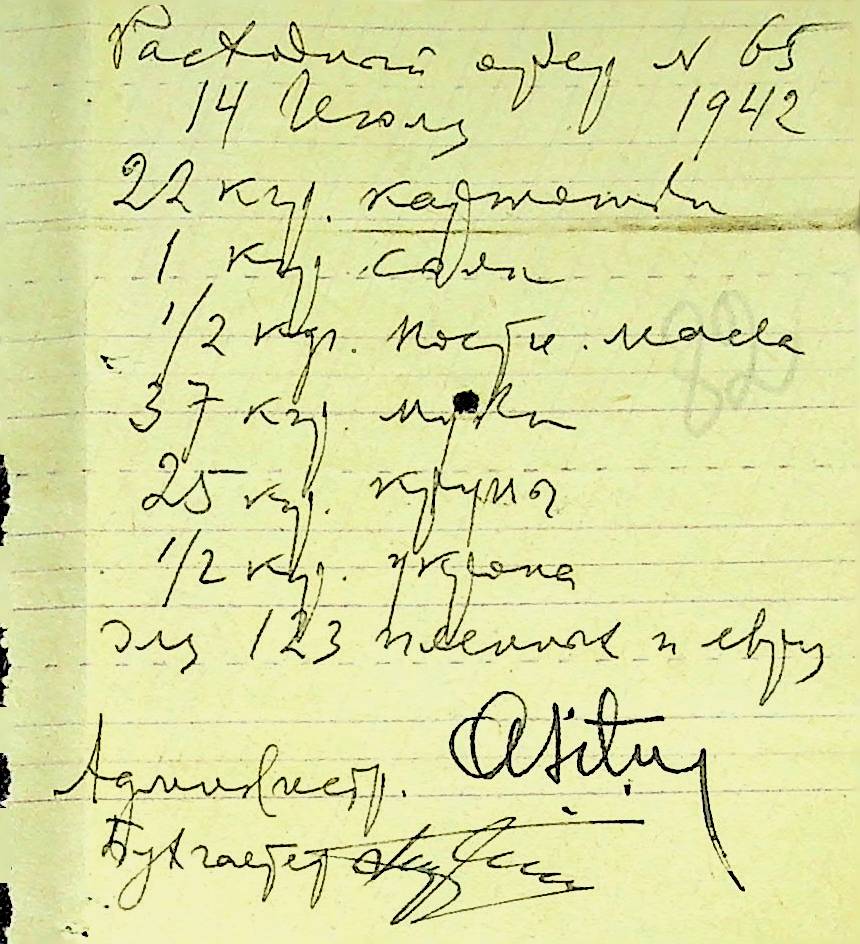 Расходный ордер N 65
14 Июля 1942
22 кгр. картошки
1 кгр соли
1/2 кгр. постн. масла
37 кгр. муки
25 кгр. крупы
1/2 кгр. укропа
для 123 пленных и евр
Администр.
Бухгалтер
82